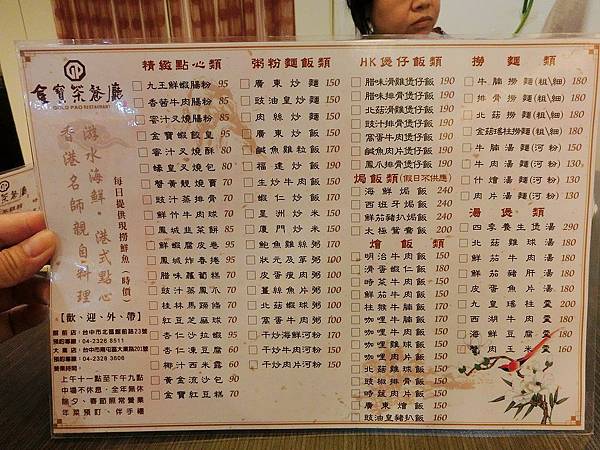 金寶茶餐廳
GOLD PAO RESTAURANT
游水海鮮。港式點心
香港名師親自料理
每日提供現撈鮮魚(時價)
【歡、迎、外、帶】
館前店:台中市北區館前路23號
預約專線:04-2326 8511
大業店:台中市南屯區大業路201號
預約專線:04-2328 3608
營業時間:
上午十一點至下午九點
中場不休息‧全年無休
除夕、春節照常營業
年菜預訂、伴手禮
精緻點心類
九王鮮蝦腸粉 95
香茜牛肉腸粉 85
蜜汁叉燒腸粉 85
金寶蝦餃皇 95
蜜汁叉燒酥 80
蠔皇叉燒包 80
蟹黃靚燒賣 70
豉汁蒸排骨 70
鮮竹牛肉球 70
鳳城韭菜餅 85
鮮蝦腐皮卷 95
鳳城炸春捲 95
腊味蘿蔔糕 70
豉汁蒸鳳爪 70
桂林馬蹄條 70
紅豆芝麻球 70
杏仁沙拉蝦 95
杏仁凍豆腐 60
椰汁西米露 60
黃金流沙包 90
金寶紅豆糕 70
粥粉麵飯類
廣東炒麵 150
豉油皇炒麵 150
肉絲炒麵 150
廣東炒飯 150
鹹魚雞粒飯 150
福建炒飯 150
生炒牛肉飯 150
星洲炒米 150
廈門炒米 150
鮑魚雞絲粥 100
狀元及第粥 100
皮蛋瘦肉粥 100
薑絲魚片粥 100
北菇蝦球粥 100
窩蛋牛肉粥 100
干炒海鮮河粉 150
干炒牛肉河粉 150
干炒肉片河粉 150
HK煲仔飯類
腊味滑雞煲仔飯 190
腊味排骨煲仔飯 190
北菇滑雞煲仔飯 190
豉汁排骨煲仔飯 190
窩蛋牛肉煲仔飯 190
鹹魚肉片煲仔飯 190
鳳爪排骨煲仔飯 190
焗飯類(假日不供應)
海鮮焗飯 240
西班牙焗飯 240
鮮茄豬扒焗飯 240
太極鴛鴦飯 200
燴飯類
明治牛肉飯 150
滑蛋蝦仁飯 180
鮮茄牛肉飯 150
時菜牛肉飯 150
咖哩牛腩飯 150
咖哩牛肉飯 150
咖哩肉片飯 150
咖哩雞球飯 150
豉椒排骨飯 150
時蔬肉片飯 150
廣東燴飯 150
豉油皇豬扒飯 160
撈麵類
牛腩撈麵(粗\細) 180
排骨撈麵(粗\細) 180
北菇撈麵(粗\細) 180
金菇瑤柱撈麵(粗\細) 180
牛腩湯麵(河粉) 150
牛肉湯麵(河粉) 130
什燴湯麵(河粉) 150
肉片湯麵(河粉) 130
湯煲類
四季養生煲湯 290
北菇雞球湯 200
鮮茄牛肉湯 200
鮮茄豬肝湯 200
皮蛋瘦肉湯 200
九皇瑤柱羹 200
西湖牛肉羹 200
海鮮豆腐羹 200
粟米羹